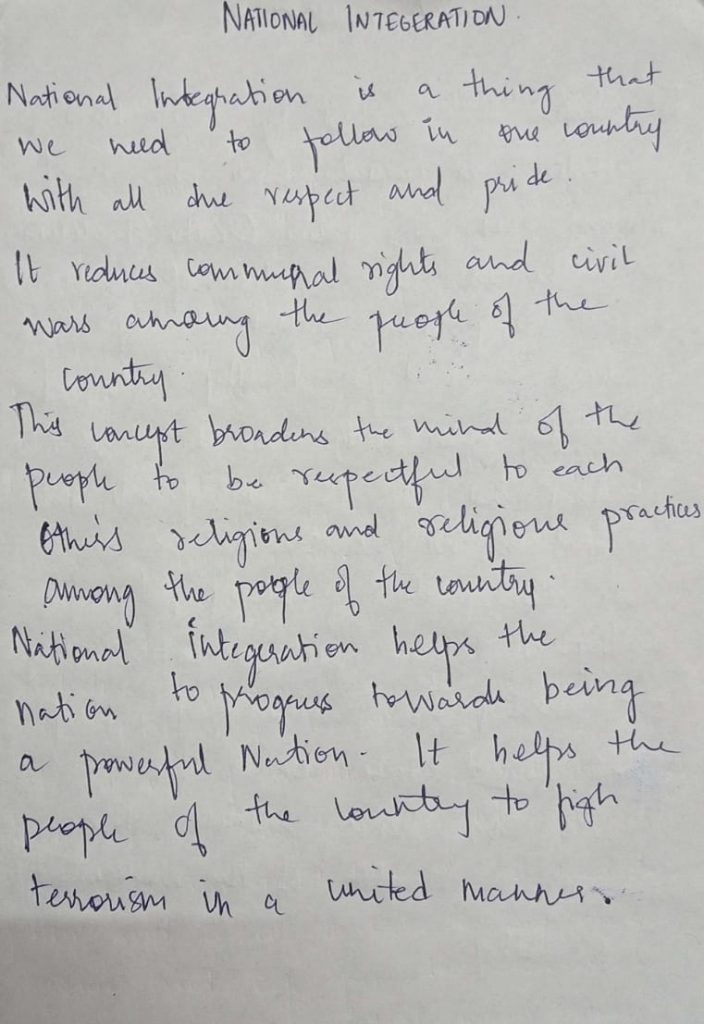 NATIONAL INTEGERATION.
National Integration is a thing that
we need to follow in our country
With all due respect and pride.
It reduces communal rights and civil
wars among the people of the
country.
This concept broadens the mind of the
people to be respectful to each
other's religions and religious practices
among the people of the country.
National integeration helps the
nation to progress towards being
a powerful Nation. It helps the
people of the country to figh
terrorism in a united manner.